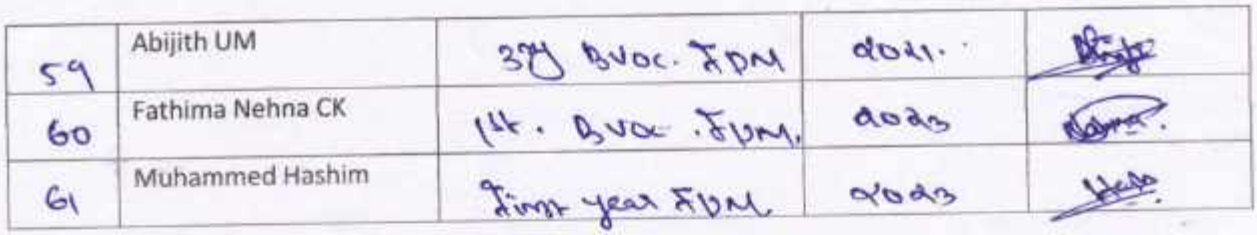 59 Abijith UM 3rd BVoc. FPM 2021.
60 Fathima Nehna CK 1st. BVoc. FPM. 2023
61 Muhammed Hashim First year FPM 2023